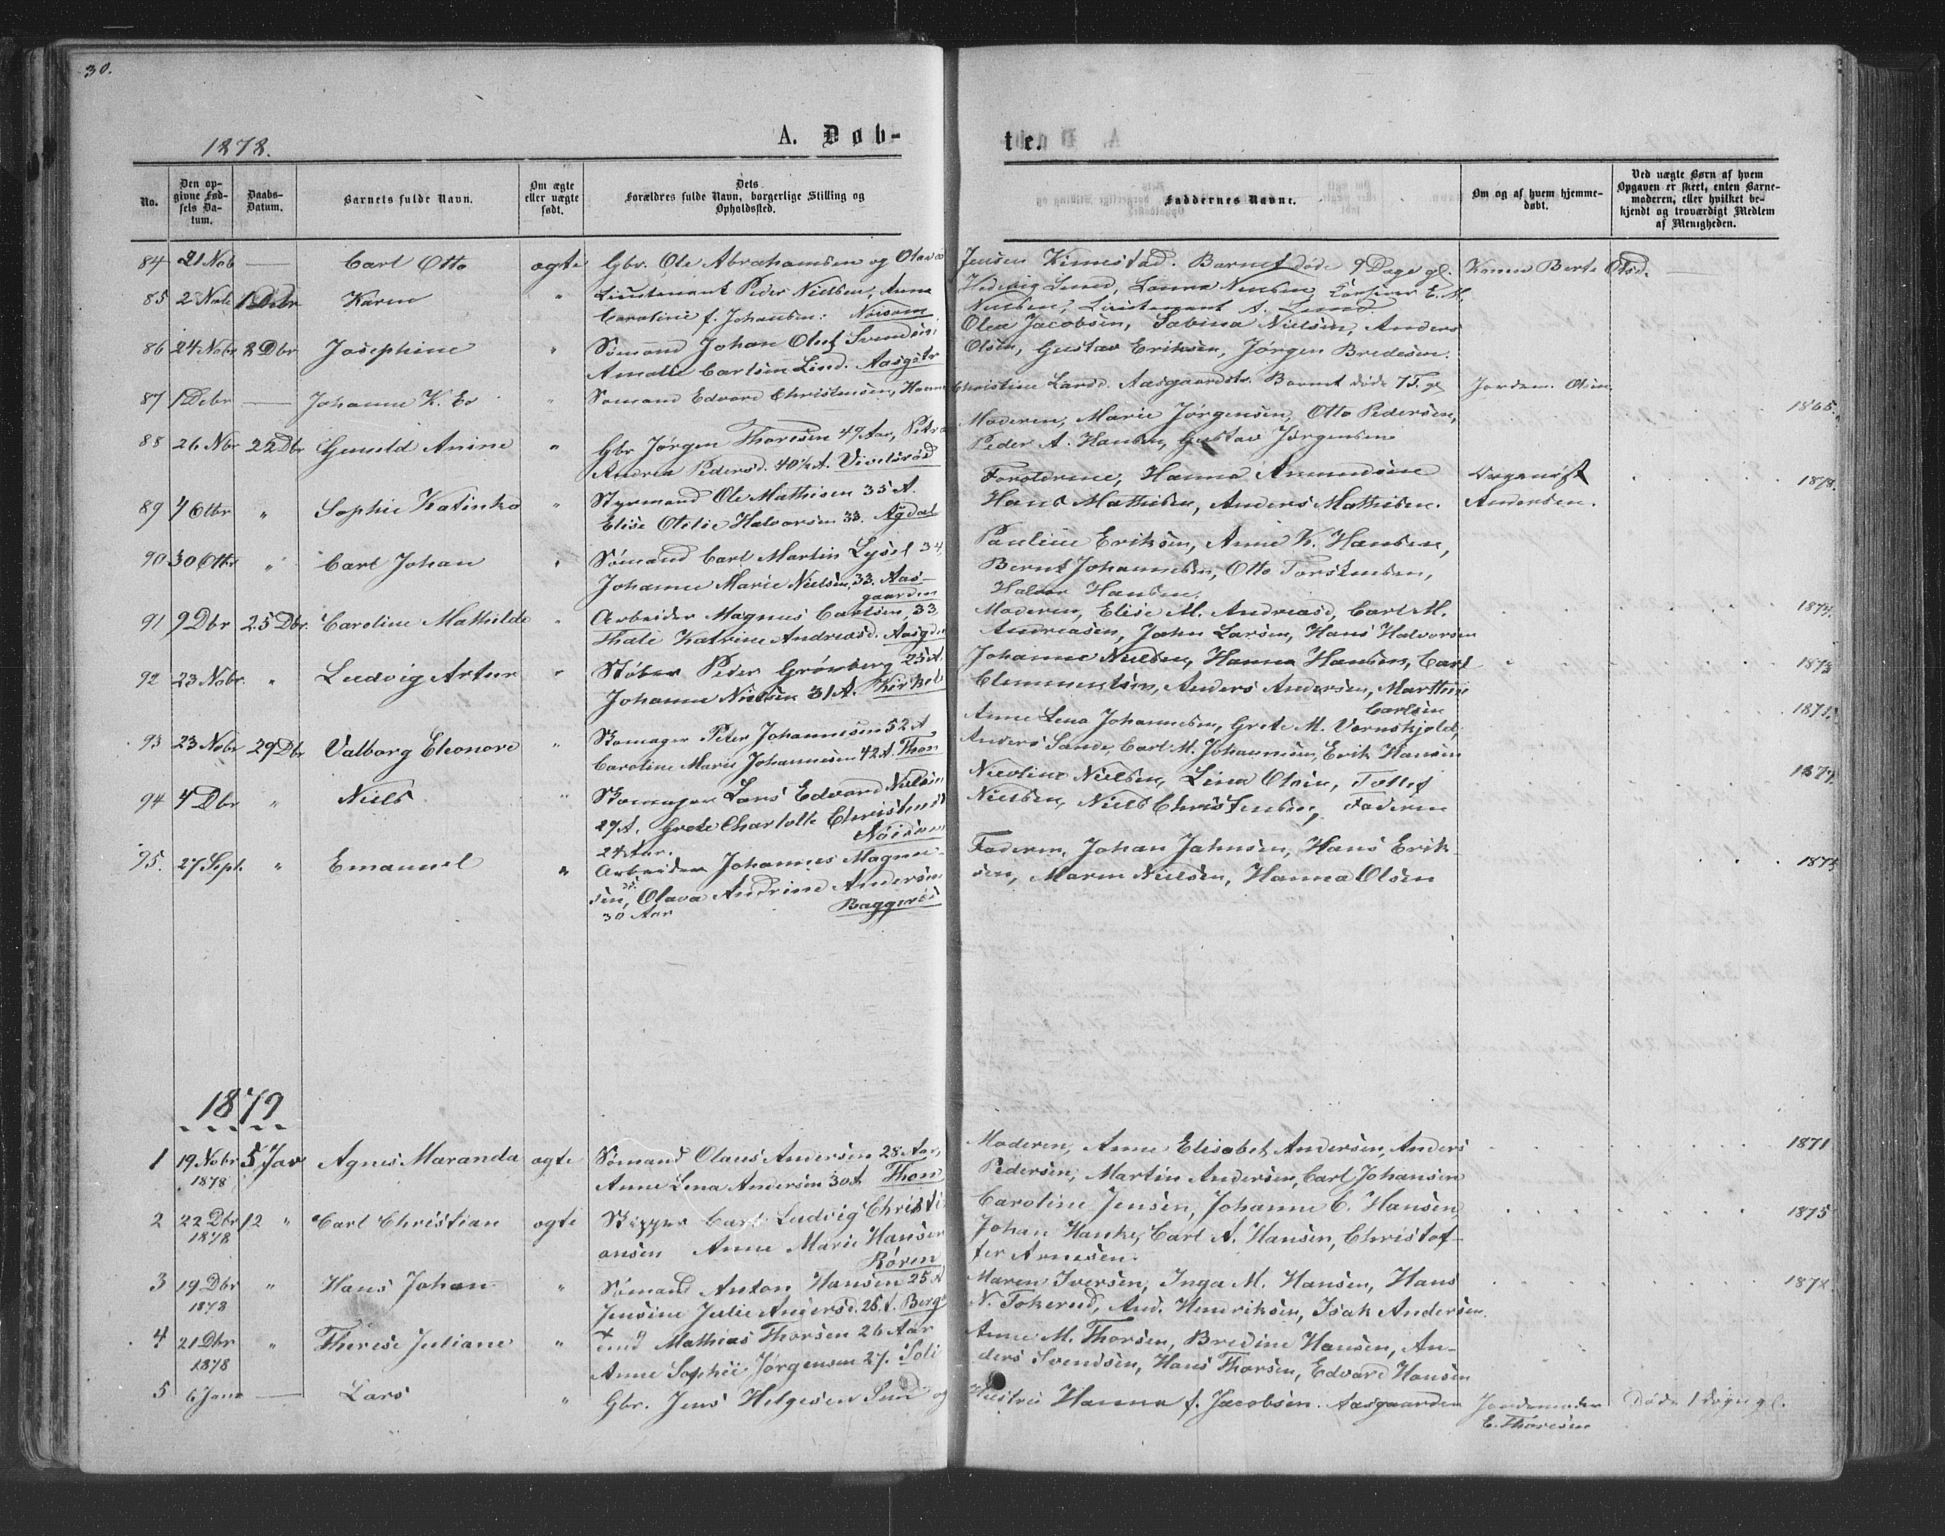 30.
1878.
A. Døb-
te.
No.
Den op-
givne Fød-
sels Da-
tum.
Daabs-
Datum.
Barnets fulde Navn.
Om ægte
eller uægte
født.
Dets
Forældres fulde Navn, borgerlige Stilling og
Opholdssted.
Faddernes Navne.
Om og af hvem hjemme-
døbt.
Ved uægte Børn af hvem
Opgaven er skeet, enten Barne-
moderen, eller hvilket be-
kjendt og troværdigt Medlem
af Menigheden.
84 21 Nob — Carl Otto ægte Gbr. Ole Abrahamsen og Olava Jensen Kinnestad. Barnet døde 9 Dage gl. Konen Berte Olsd.
85 2 Nob 1 Debr Karen " Lieutenant Peder Nielsen, Anna
Caroline f. Johansen: Nøisom
Hedevig Lund, Laura Nielsen, E. M.
Nielsen, Lieutenant A. Lund
86 24 Nobr 8 Dbr Josephine " Sømand Johan Oluf Svendsen
Amalie Carlsen Lind. Aasgstr
Olea Jacobsen, Sabina Nielsen, Anders
Olsen, Gustav Eriksen, Jørgen Bredesen.
87 1 Debr — Johanne K. Ev " Sømand Edvard Christensen, Hanna Christine Larsd. Aasgaardstr. Barnet døde 7 T. gl Jordem. Olsen
88 26 Nbr 22 Dbr Gunild Anine " Gbr Jørgen Thoresen 49 Aar, Petra
Andrea Pedersd. 40½ A. Vivelsrød
Moderen, Marie Jørgensen, Otto Pedersen,
Peder A. Hansen, Gustav Jørgensen
1865.
89 4 Otbr " Sophie Katinka " Styrmand Ole Mathisen 35 A.
Elise Otilie Halvorsen 33. Agdal
Forældrene, Hanna Amundsen
Hans Mathisen, Anders Mathisen.
Andersen.
1878.
90 30 Otbr " Carl Johan " Sømand Carl Martin Lysel 34,
Johanne Marie Nielsen, 33. Aas-
gaarden
Pauline Eriksen, Anne K. Hansen,
Bernt Johannesen, Otto Torstensen,
Halvor Hansen.
91 9 Dbr 25 Dbr. Caroline Mathilde " Arbeider Magnus Carlsen, 33,
Thale Katrine Andreasd. Aasgden
Moderen, Elise M. Andreasd, Carl M.
Andreasen, John Larsen, Hans Halvorsen
1874.
92 23 Nobr. " Ludvig Artur " Støber Peder Grønberg 25 A.
Johanne Nielsen 31 A.
Johanne Nielsen, Hanna Hansen, Carl
Clemmentsen, Anders Andersen, Marthine
Carlsen
1873
93 23 Nobr 29 Dbr Valborg Eleonore " Skomager Peter Johannesen 52 A
Caroline Marie Johannesen 42 A. Thon
Anne Lena Johannesen, Grete M. Vornskjold,
Anders Sande, Carl M. Johannesen, Erik Hansen
94 4 Dbr " Niels " Skomager Lars Edvard Nielsen
29 A. Grete Charlotte Christensd
24 Aar. Nøisom
Nicoline Nielsen, Lina Olsen, Tollef
Nielsen, Niels Christensen, Faderen
95. 27 Sept. " Emanuel " Arbeider Johannes Magnu-
sen, Olava Andrine Andersen
30 Aar Baggerød
Faderen, Johan Jahnsen, Hans Erik-
sen, Maren Nielsen, Hanna Olsen
1879
1 19 Nobr 5 Jav Agnes Maranda ægte Sømand Olaus Andersen 28 Aar,
1878 Anne Lena Andersen 30 A Thon
Moderen, Anne Elisabet Andersen, Anders
Pedersen, Martin Andersen, Carl Johansen
1871
2 22 Dbr 12 " Carl Christian ægte Skipper Carl Ludvig Christi
1878 ansen Anne Marie Hansen
Røren
Caroline Jensen, Johanne C. Hansen,
Johan Hanke, Carl A. Hansen, Christof-
fer Arnesen.
1875
3 19 Dbr " Hans Johan " Sømand Anton Hansen 25 A
1878 Jensine Julie Andersd. 26 A. Berg
Maren Iversen, Inga M. Hansen, Hans
N. Tokerud, And. Hendriksen, Isak Andersen
4 21 Dbr " Therese Juliane " Mathias Thorsen 26 Aar
1878 Anne Sophie Jørgensen 27. Soli
Anne M. Thorsen, Bredine Hansen, An-
ders Svendsen, Hans Thorsen, Edvard Hansen
5 6 Janr — Lars " Gbr. Jens Helgesen og Hustru Hanna f. Jacobsen. Aasgaarden Jordemoder Døde 1 døgn gl.
E. Thoresen